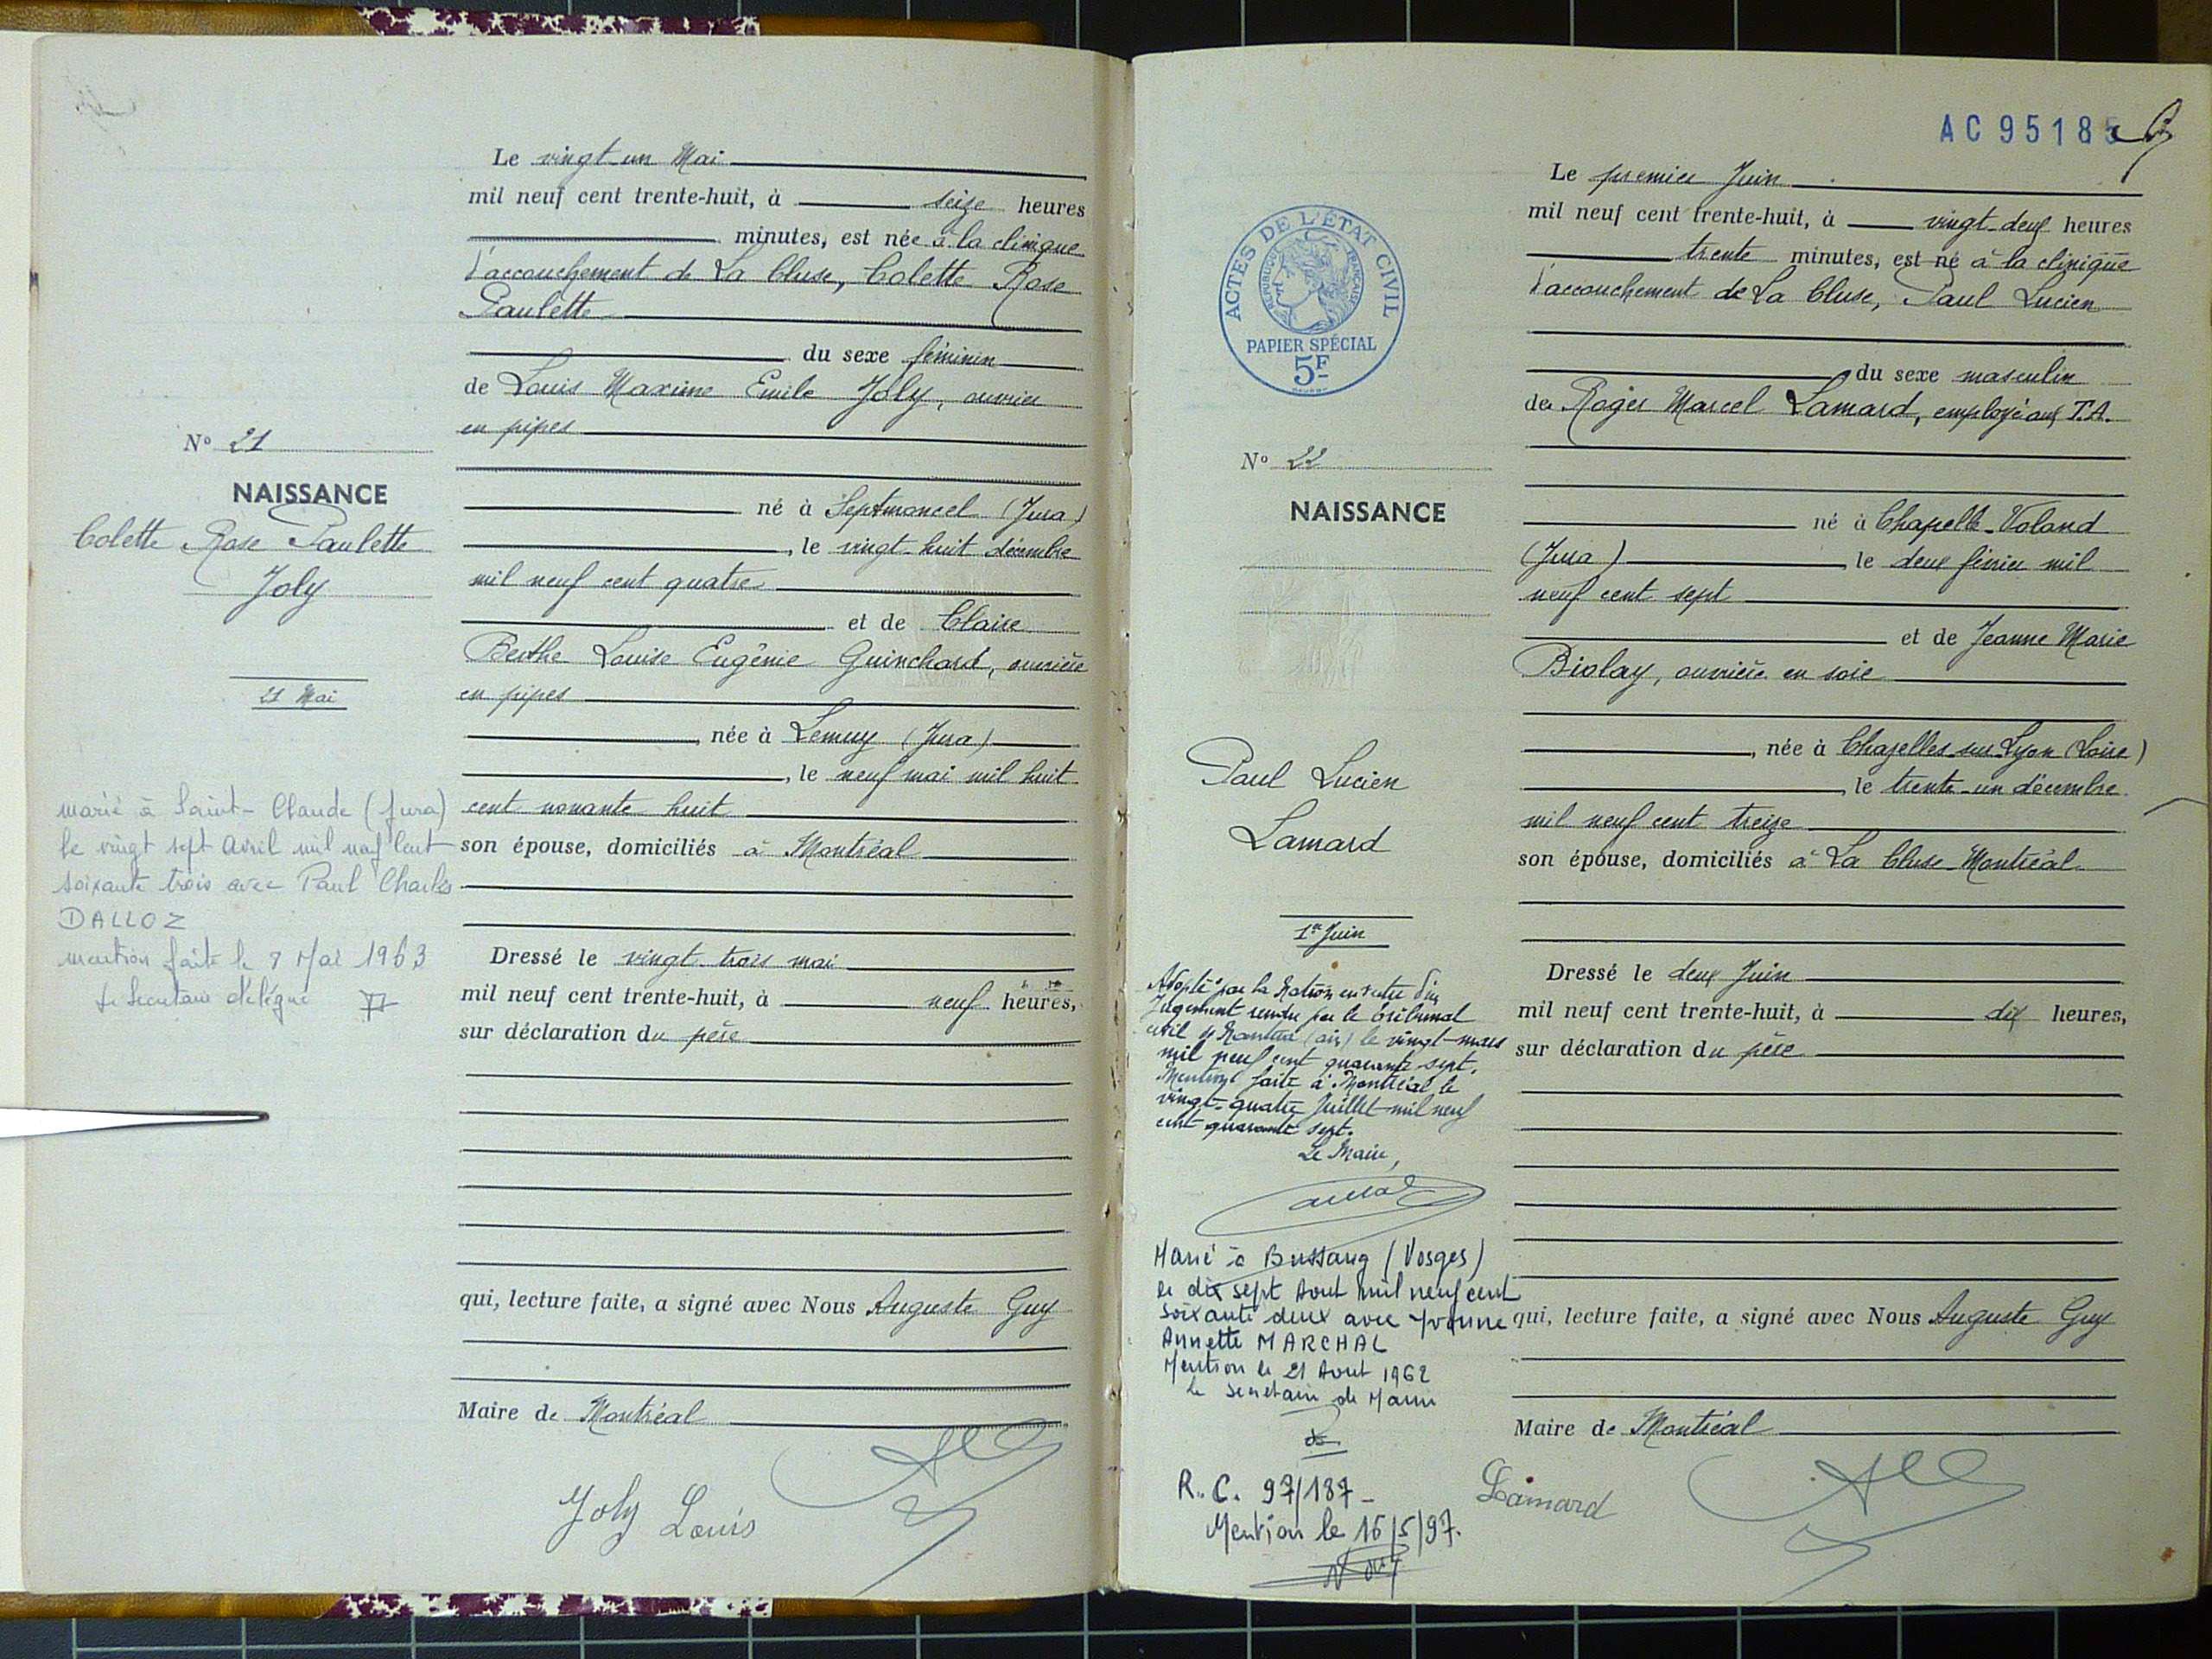 Le vingt-un Mai
mil neuf cent trente-huit, à seize heures
minutes, est née à la clinique
d'accouchement de La Cluse, Colette Rose
Paulette
du sexe féminin
de Louis Maxime Emile Joly, ouvrier
en pipes
né à Septmoncel (Jura)
, le vingt-huit décembre
mil neuf cent quatre
et de Claire
Berthe Louise Eugénie Guinchard, ouvrière
en pipes
, née à Lemuy (Jura)
, le neuf mai mil huit
cent nonante huit
son épouse, domiciliés à Montréal
Dressé le vingt-trois mai
mil neuf cent trente-huit, à neuf heures,
sur déclaration du père
qui, lecture faite, a signé avec Nous Auguste Guy
Maire de Montréal
Joly Louis
N° 21
NAISSANCE
Colette Rose Paulette
Joly
21 Mai
marié à Saint-Claude (Jura)
le vingt sept Avril mil neuf Cent
soixante trois avec Paul Charles
DALLOZ
mention faite le 7 Mai 1963
Le Secrétaire délégué
AC 95185
ACTES DE L'ÉTAT CIVIL
RÉPUBLIQUE FRANÇAISE
PAPIER SPÉCIAL
5F
N° 22
NAISSANCE
Paul Lucien
Lamard
1er Juin
Adopté par la Nation en vertu d'un
Jugement rendu par le tribunal
civil de Nantua (ain) le vingt-mars
mil neuf cent quarante sept.
Mention faite à Montréal le
vingt-quatre Juillet mil neuf
cent quarante sept.
Le Maire,
Marié à Bussang (Vosges)
le dix sept Aout mil neuf cent
soixante deux avec Yvonne
Annette MARCHAL
Mention le 21 Aout 1962
le Secrétaire de Mairie
R.C. 97/187-
Mention le 16/5/97.
Le premier Juin
mil neuf cent trente-huit, à vingt-deux heures
trente minutes, est né à la clinique
d'accouchement de La Cluse, Paul Lucien
du sexe masculin
de Roger Marcel Lamard, employé aux T.A.
né à Chapelle-Voland
(Jura) , le deux février mil
neuf cent sept
et de Jeanne Marie
Biolay, ouvrière en soie
, née à Chazelles sur Lyon (Loire)
, le trente-un décembre
mil neuf cent treize
son épouse, domiciliés à La Cluse-Montréal
Dressé le deux Juin
mil neuf cent trente-huit, à dix heures,
sur déclaration du père
qui, lecture faite, a signé avec Nous Auguste Guy
Maire de Montréal
Lamard